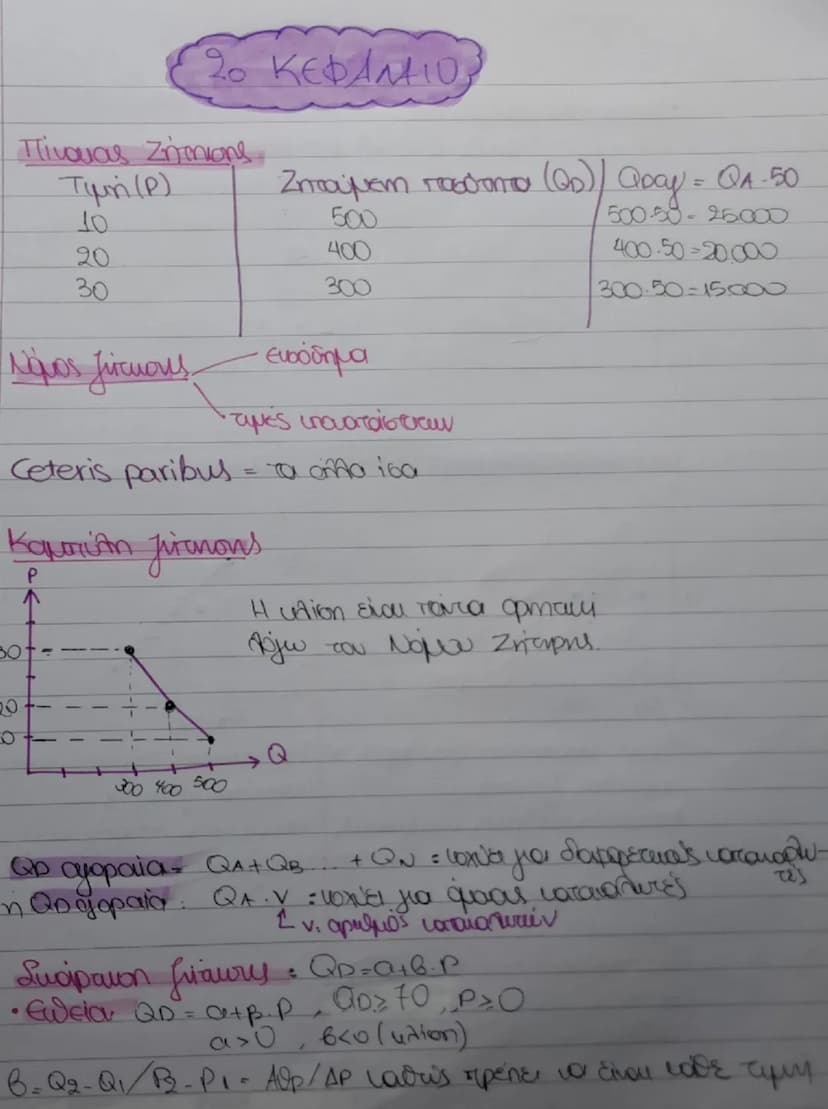 2ο ΚΕΦΑΛΑΙΟ
Πίνακας Ζήτησης
Τιμή (P) Ζητούμενη ποσότητα (QD) Qαγ = QA·50
10 500 500·50 = 25.000
20 400 400·50 = 20.000
30 300 300·50 = 15.000
Νόμος ζήτησης
εισόδημα
τιμές υποκατάστατων
Ceteris paribus = τα άλλα ίσα
Καμπύλη ζήτησης
P
Η κλίση είναι πάντα αρνητική
λόγω του Νόμου Ζήτησης.
30
20
10
Q
300 400 500
QD αγοραία = QA + QB ... + QN = ισχύει για διαφορετικούς καταναλω-
τές
ή QD αγοραία: QA·ν = ισχύει για όμοιους καταναλωτές
ν: αριθμός καταναλωτών
Συνάρτηση ζήτησης: QD = α+β·P
• Ευθεία: QD = α+β·P, QD≥0, P≥0
α>0, β<0 (κλίση)
β = Q2-Q1/P2-P1 = ΔQD/ΔP καθώς πρέπει να είναι κάθε τιμή